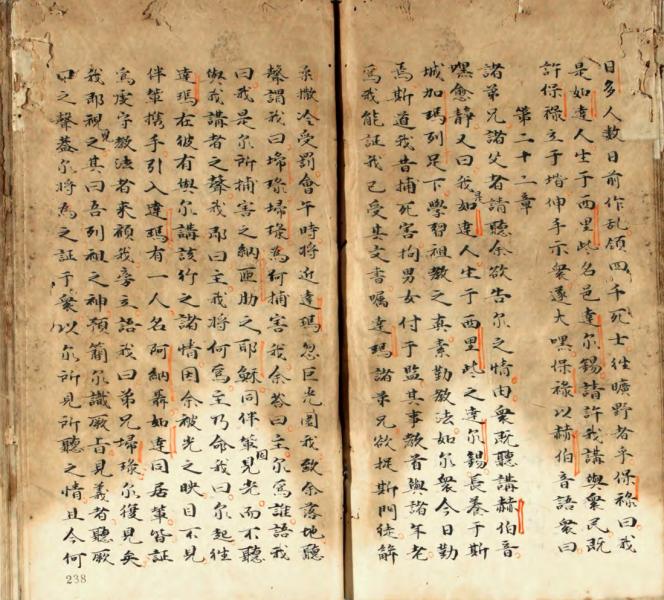 日多人數日前作乱領四千死士徃曠野者乎保祿曰我
是如達人生于西里些名邑達尔錫請許我講與衆民既
許保祿立于堦伸手示衆遂大嘿保祿以赫伯音語衆曰
第二十二章
諸弟兄諸父者請聽余欲告尔之情由衆既聽講赫伯音
嘿愈靜又曰我是如達人生于西里些之達尔錫長養于斯
城加瑪列足下學習祖教之真素勤教法如尔衆今日勤
焉斯道我昔捕死害拘男女付于監其事教首與諸年老
爲我能証我已受其文書囑達瑪諸弟兄欲捉斯門徒解
柔撒冷受罰會午時將近達瑪忽巨光圍我致余落地聽
聲謂我曰掃祿掃祿爲何捕害我余答曰主尔爲誰語我
曰我是尔所捕害之納匝肋之耶穌同伴輩固見光而不聽
與我講者之聲我即曰主我將何爲主乃命我曰尔起徃
達瑪在彼有與尔講該行之諸情因余被光之映目不見
伴輩携手引入達瑪有一人名阿納聶如達同居輩皆証
爲虔守教法者來顧我旁立語我曰弟兄掃祿尔復見矣
我即視見之其曰吾列祖之神預簡尔識厥旨見義者聽厥
口之聲蓋尔將爲之証于衆以尔所見所聽之情且今何
238